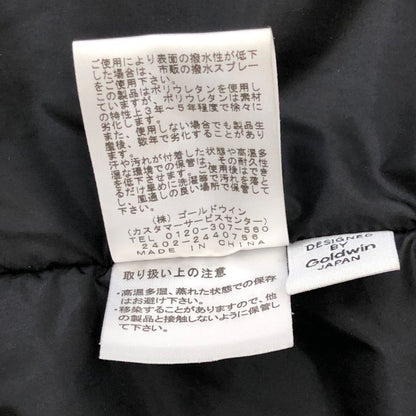 ご使用により表面の撥水性が低下
した場合は、市販の撥水スプレー
をご使用下さい。
この製品はポリウレタンを使用し
ていますが、ポリウレタンは素材
の特性上3年～5年程度で徐々に
劣化します。
また、使用しない場合でも製品生
産後、数年で劣化することがあり
ます。
汗や汚れが付着した状態や高温多
湿な環境での保管は、その耐久性
を低下させます。ご使用後はでき
るだけ早めに洗濯等で汚れを落と
し、風通しの良い場所で保管して
下さい。
(株) ゴールドウイン
(カスタマーサービスセンター)
TEL 0120-307-560
2402-2440756
MADE IN CHINA
DESIGNED
BY
Goldwin
JAPAN
取り扱い上の注意
・高温多湿、蒸れた状態での保存
はお避け下さい。
・移染することがありますので、他
の製品と接触しないように保管し
て下さい。